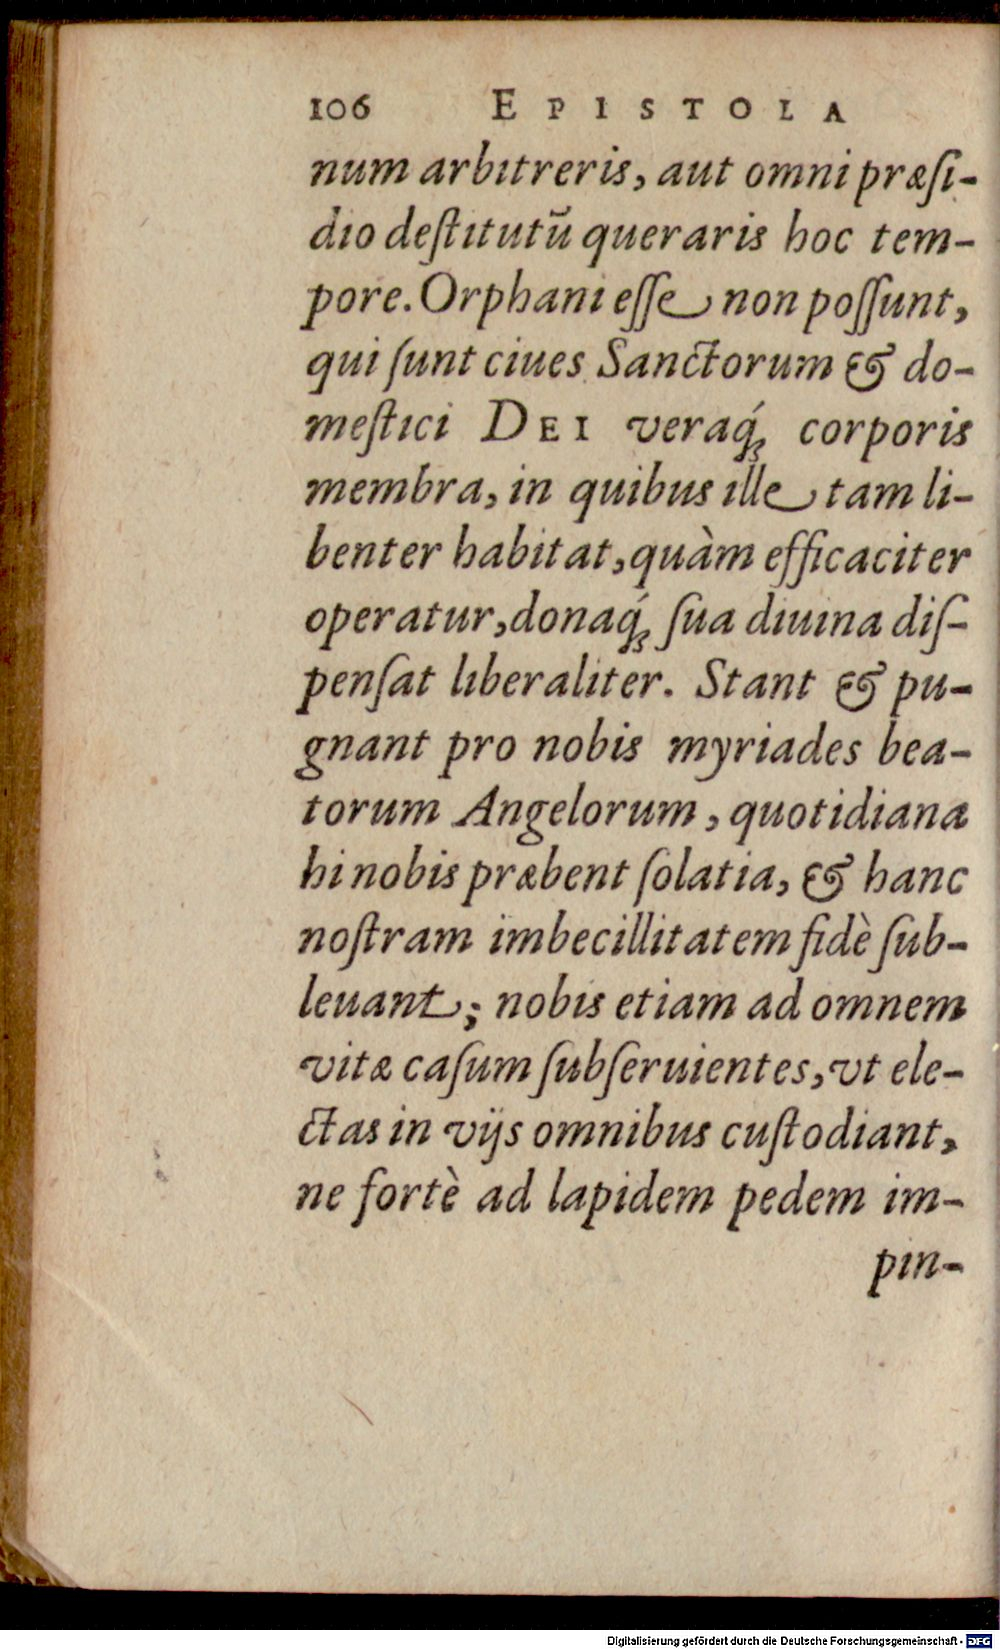 106 EPISTOLA
num arbitreris, aut omni præſi-
dio deſtitutū queraris hoc tem-
pore. Orphani eſſe non poſſunt,
qui ſunt ciues Sanctorum & do-
meſtici DEI veraq́; corporis
membra, in quibus ille tam li-
benter habitat, quàm efficaciter
operatur, donaq́; ſua diuina diſ-
penſat liberaliter. Stant & pu-
gnant pro nobis myriades bea-
torum Angelorum, quotidiana
hi nobis præbent ſolatia, & hanc
noſtram imbecillitatem fidè ſub-
leuant; nobis etiam ad omnem
vitæ caſum ſubſeruientes, vt ele-
ctas in vijs omnibus cuſtodiant,
ne fortè ad lapidem pedem im-
pin-
Digitalisierung gefördert durch die Deutsche Forschungsgemeinschaft - DFG